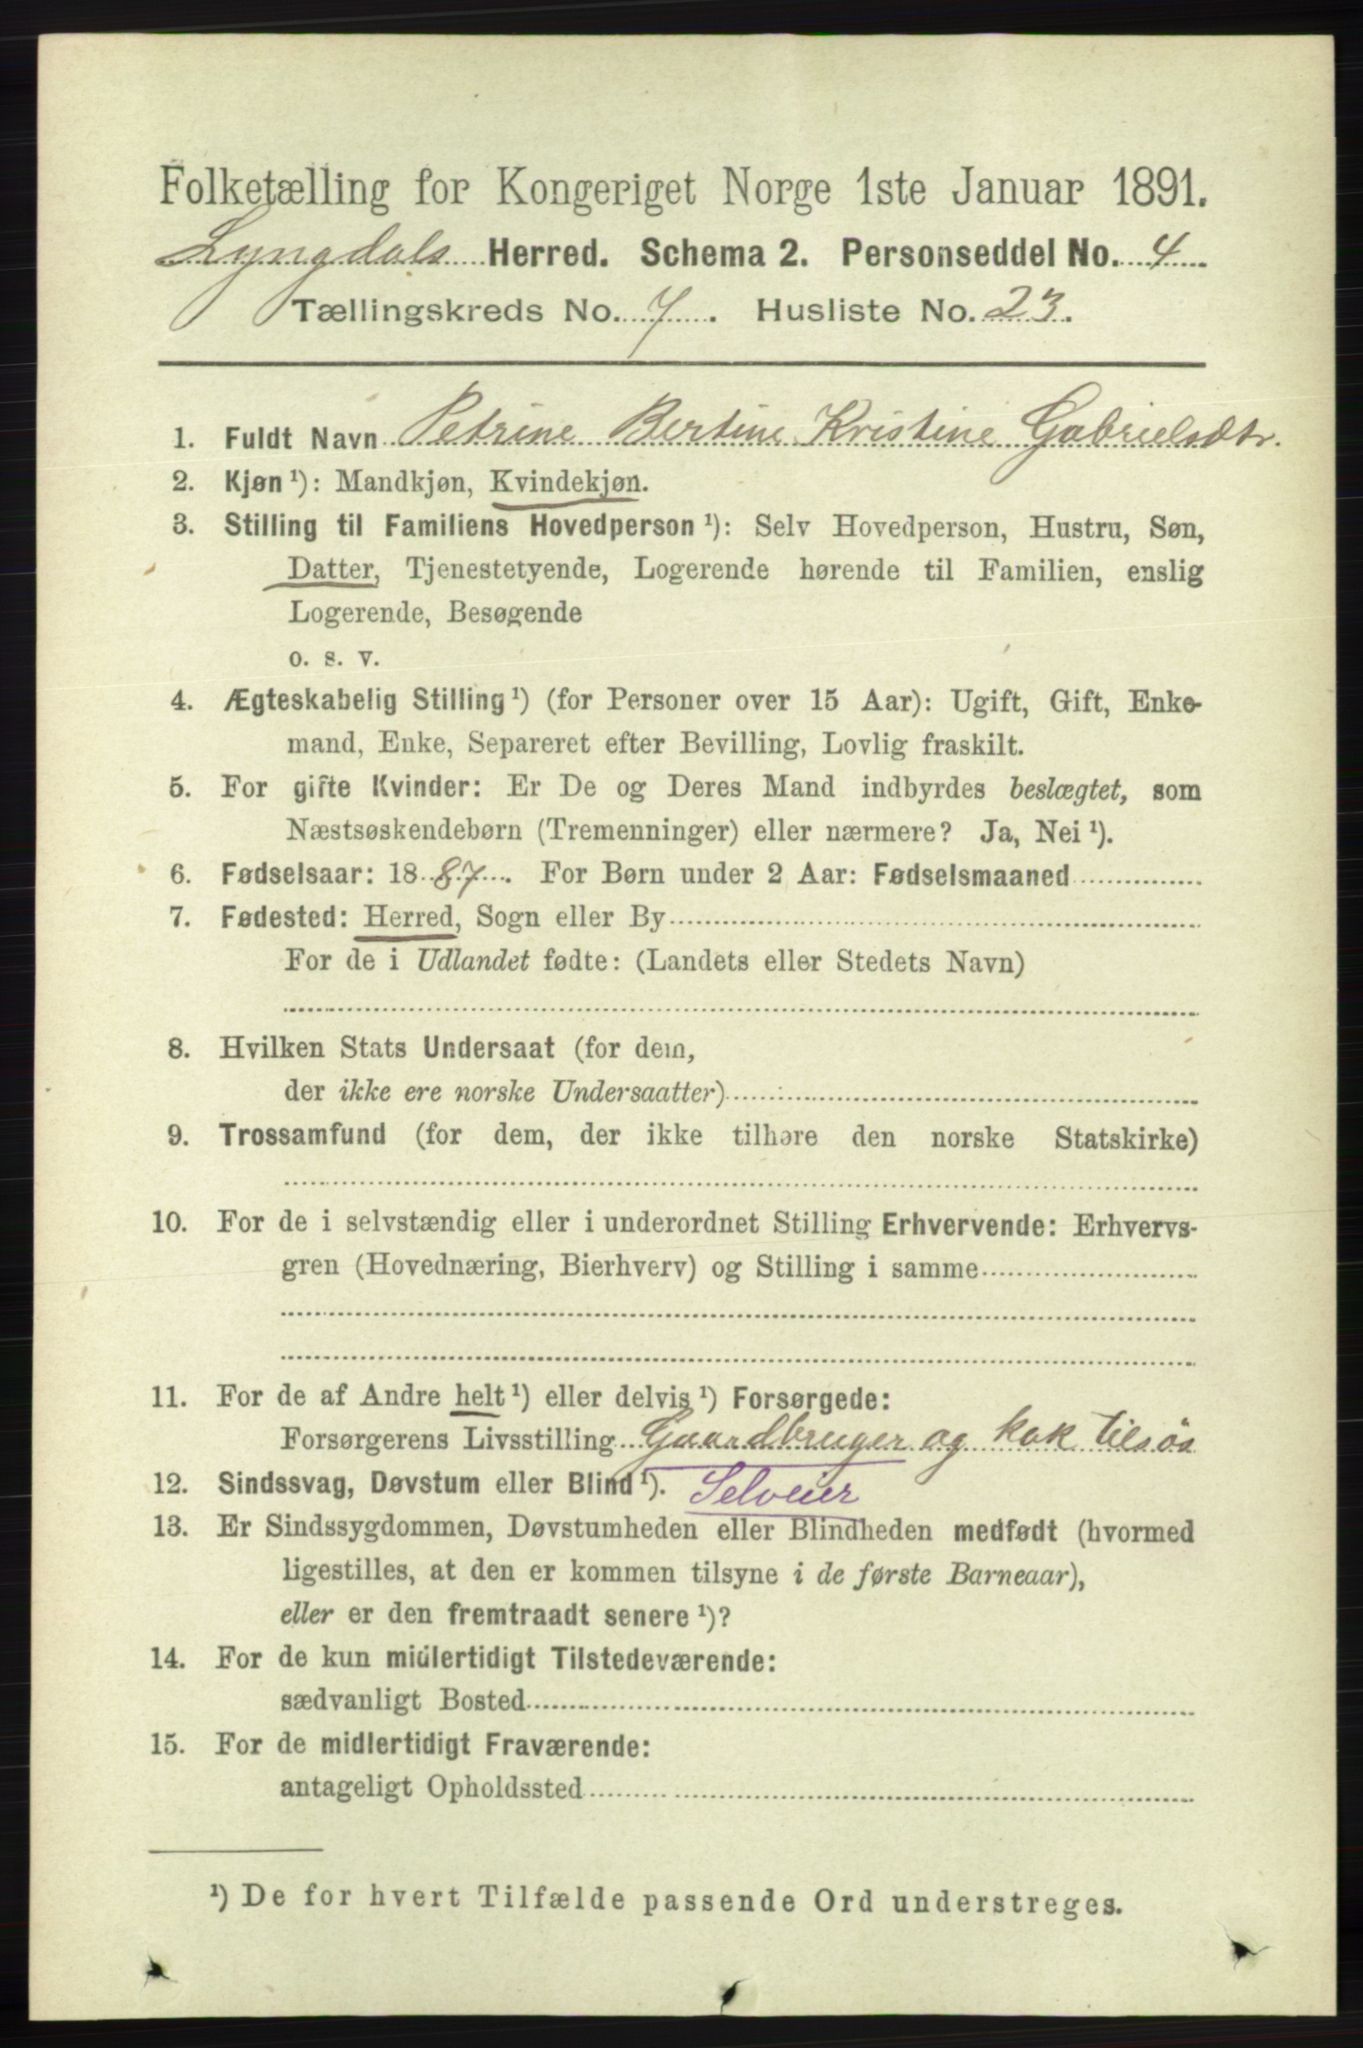 Folketælling for Kongeriget Norge 1ste Januar 1891.
Lyngdals Herred. Schema 2. Personseddel No. 4
Tællingskreds No. 7. Husliste No. 23.
1. Fuldt Navn Petrine Bertine Kristine Gabrielsdtr.
2. Kjøn ¹): Mandkjøn, Kvindekjøn.
3. Stilling til Familiens Hovedperson ¹): Selv Hovedperson, Hustru, Søn,
Datter, Tjenestetyende, Logerende hørende til Familien, enslig
Logerende, Besøgende
o. s. v.
4. Ægteskabelig Stilling ¹) (for Personer over 15 Aar): Ugift, Gift, Enke-
mand, Enke, Separeret efter Bevilling, Lovlig fraskilt.
5. For gifte Kvinder: Er De og Deres Mand indbyrdes beslægtet, som
Næstsøskendebørn (Tremenninger) eller nærmere? Ja, Nei ¹).
6. Fødselsaar: 1887. For Børn under 2 Aar: Fødselsmaaned
7. Fødested: Herred, Sogn eller By
For de i Udlandet fødte: (Landets eller Stedets Navn)
8. Hvilken Stats Undersaat (for dem,
der ikke ere norske Undersaatter)
9. Trossamfund (for dem, der ikke tilhøre den norske Statskirke)
10. For de i selvstændig eller i underordnet Stilling Erhvervende: Erhvervs-
gren (Hovednæring, Bierhverv) og Stilling i samme
11. For de af Andre helt ¹) eller delvis ¹) Forsørgede:
Forsørgerens Livsstilling Gaardbruger og kok tilsøs
12. Sindssvag, Døvstum eller Blind ¹). Selveier
13. Er Sindssygdommen, Døvstumheden eller Blindheden medfødt (hvormed
ligestilles, at den er kommen tilsyne i de første Barneaar),
eller er den fremtraadt senere ¹)?
14. For de kun midlertidigt Tilstedeværende:
sædvanligt Bosted
15. For de midlertidigt Fraværende:
antageligt Opholdssted
¹) De for hvert Tilfælde passende Ord understreges.